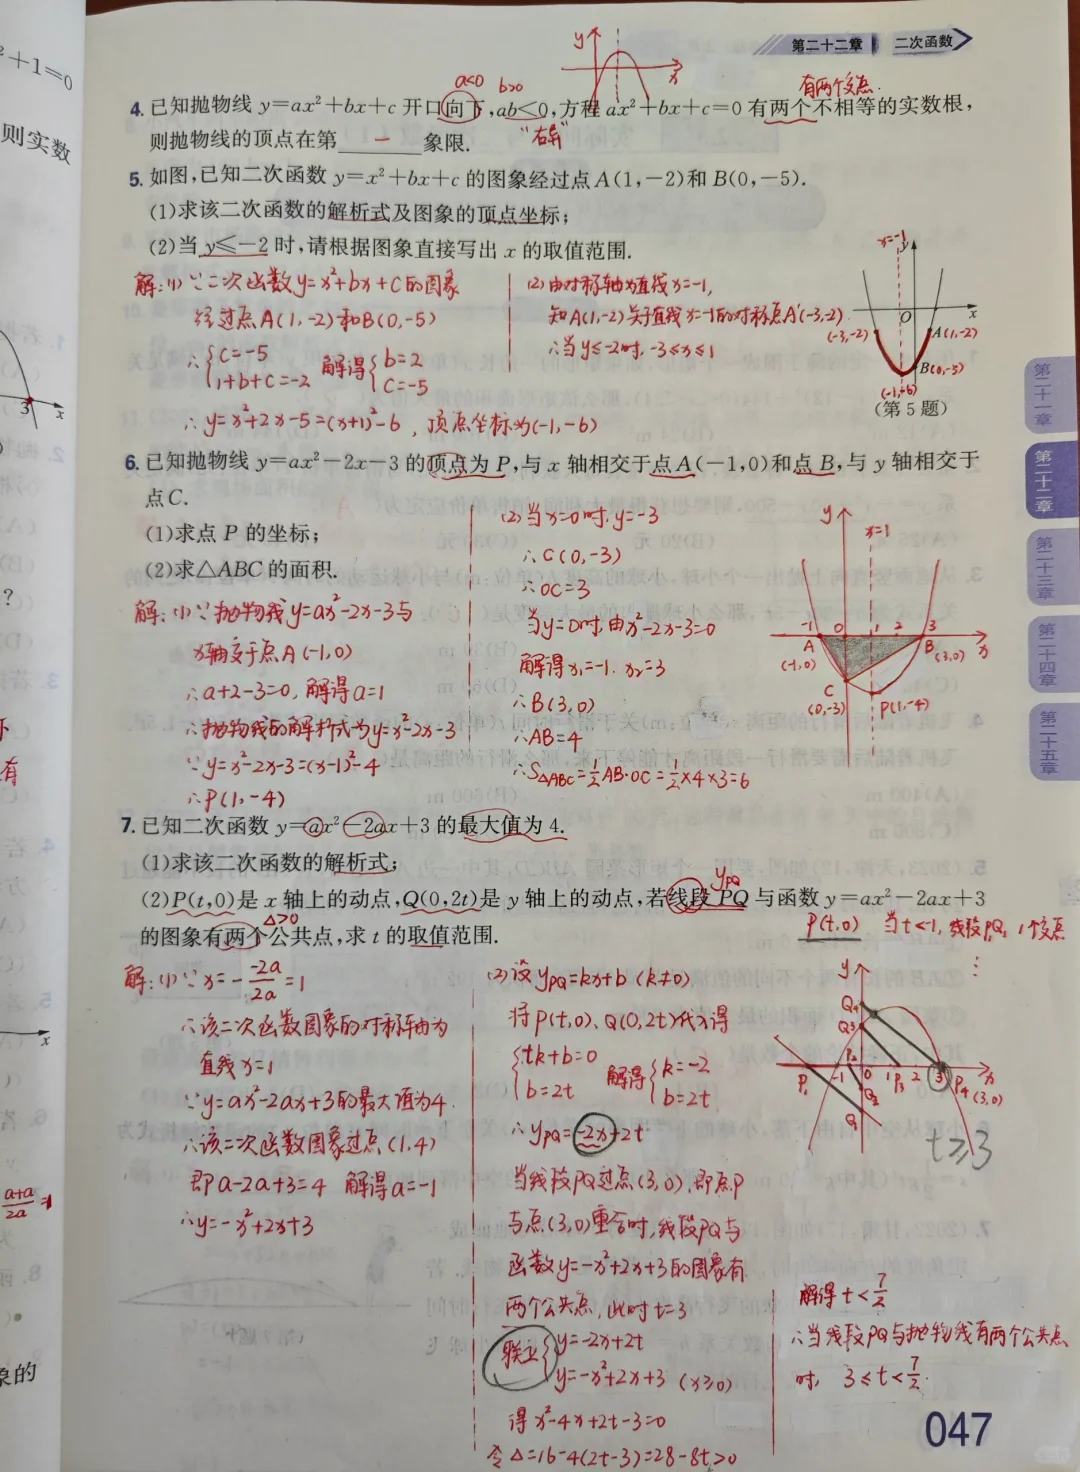 ²+1=0
则实数
第二十二章 二次函数
a<0 b>0 有两个交点.
4. 已知抛物线 y=ax²+bx+c 开口向下,ab<0,方程 ax²+bx+c=0 有两个不相等的实数根,
"右异"
则抛物线的顶点在第 一 象限.
5. 如图,已知二次函数 y=x²+bx+c 的图象经过点 A(1,-2)和 B(0,-5).
(1)求该二次函数的解析式及图象的顶点坐标;
(2)当 y≤-2 时,请根据图象直接写出 x 的取值范围.
解:(1)∵二次函数y=x²+bx+c的图象
经过点A(1,-2)和B(0,-5)
∴{c=-5 1+b+c=-2 解得{b=2 c=-5
∴y=x²+2x-5=(x+1)²-6, 顶点坐标为(-1,-6)
(2)由对称轴为直线x=-1,
知A(1,-2)关于直线x=-1的对称点A'(-3,-2).
∴当y≤-2时,-3≤x≤1
x=-1
y
O x
(-3,-2) A(1,-2)
B(0,-5)
(-1,-6)
(第 5 题)
6. 已知抛物线 y=ax²-2x-3 的顶点为 P,与 x 轴相交于点 A(-1,0)和点 B,与 y 轴相交于
点C.
(1)求点 P 的坐标;
(2)求△ABC 的面积.
解:(1)∵抛物线y=ax²-2x-3与
x轴交于点A(-1,0)
∴a+2-3=0,解得a=1
∴抛物线的解析式为y=x²-2x-3
∵y=x²-2x-3=(x-1)²-4
∴P(1,-4)
(2)当x=0时,y=-3
∴C(0,-3)
∴OC=3
当y=0时,由x²-2x-3=0
解得x₁=-1. x₂=3
∴B(3,0)
∴AB=4
∴S△ABC=½AB·OC=½×4×3=6
y
x=1
-1 0 1 2 3
A B x
(-1,0) (3,0)
C
(0,-3) P(1,-4)
7. 已知二次函数 y=ax²-2ax+3 的最大值为 4.
(1)求该二次函数的解析式;
yPQ
(2)P(t,0)是 x 轴上的动点,Q(0,2t)是 y 轴上的动点,若线段 PQ 与函数 y=ax²-2ax+3
△>0
的图象有两个公共点,求 t 的取值范围.
P(t,0) 当t<-1,线段P₁Q₁ 1个交点
解:(1)∵x=-\frac{-2a}{2a}=1
∴该二次函数图象的对称轴为
直线x=1
∵y=ax²-2ax+3的最大值为4
∴该二次函数图象过点(1,4)
即a-2a+3=4 解得a=-1
∴y=-x²+2x+3
(2)设yPQ=kx+b(k≠0)
将P(t,0)、Q(0,2t)代入得
{tk+b=0 b=2t 解得{k=-2 b=2t
∴yPQ=-2x+2t
当线段PQ过点(3,0),即点P
与点(3,0)重合时,线段PQ与
函数y=-x²+2x+3的图象有
两个公共点,此时t=3
联立{y=-2x+2t y=-x²+2x+3 (x≥0)
得x²-4x+2t-3=0
令△=16-4(2t-3)=28-8t>0
y
Q₄
Q₃
P₂
P₁ -1 0 1 P₃ 2 3 P₄ x
(3,0)
Q₂
Q₁
t≥3
解得t<\frac{7}{2}
∴当线段PQ与抛物线有两个公共点
时, 3≤t<\frac{7}{2}.
第二十一章
第二十二章
第二十三章
第二十四章
第二十五章
047
3 x
?
有
x
\frac{a+a}{2a}=1
象的